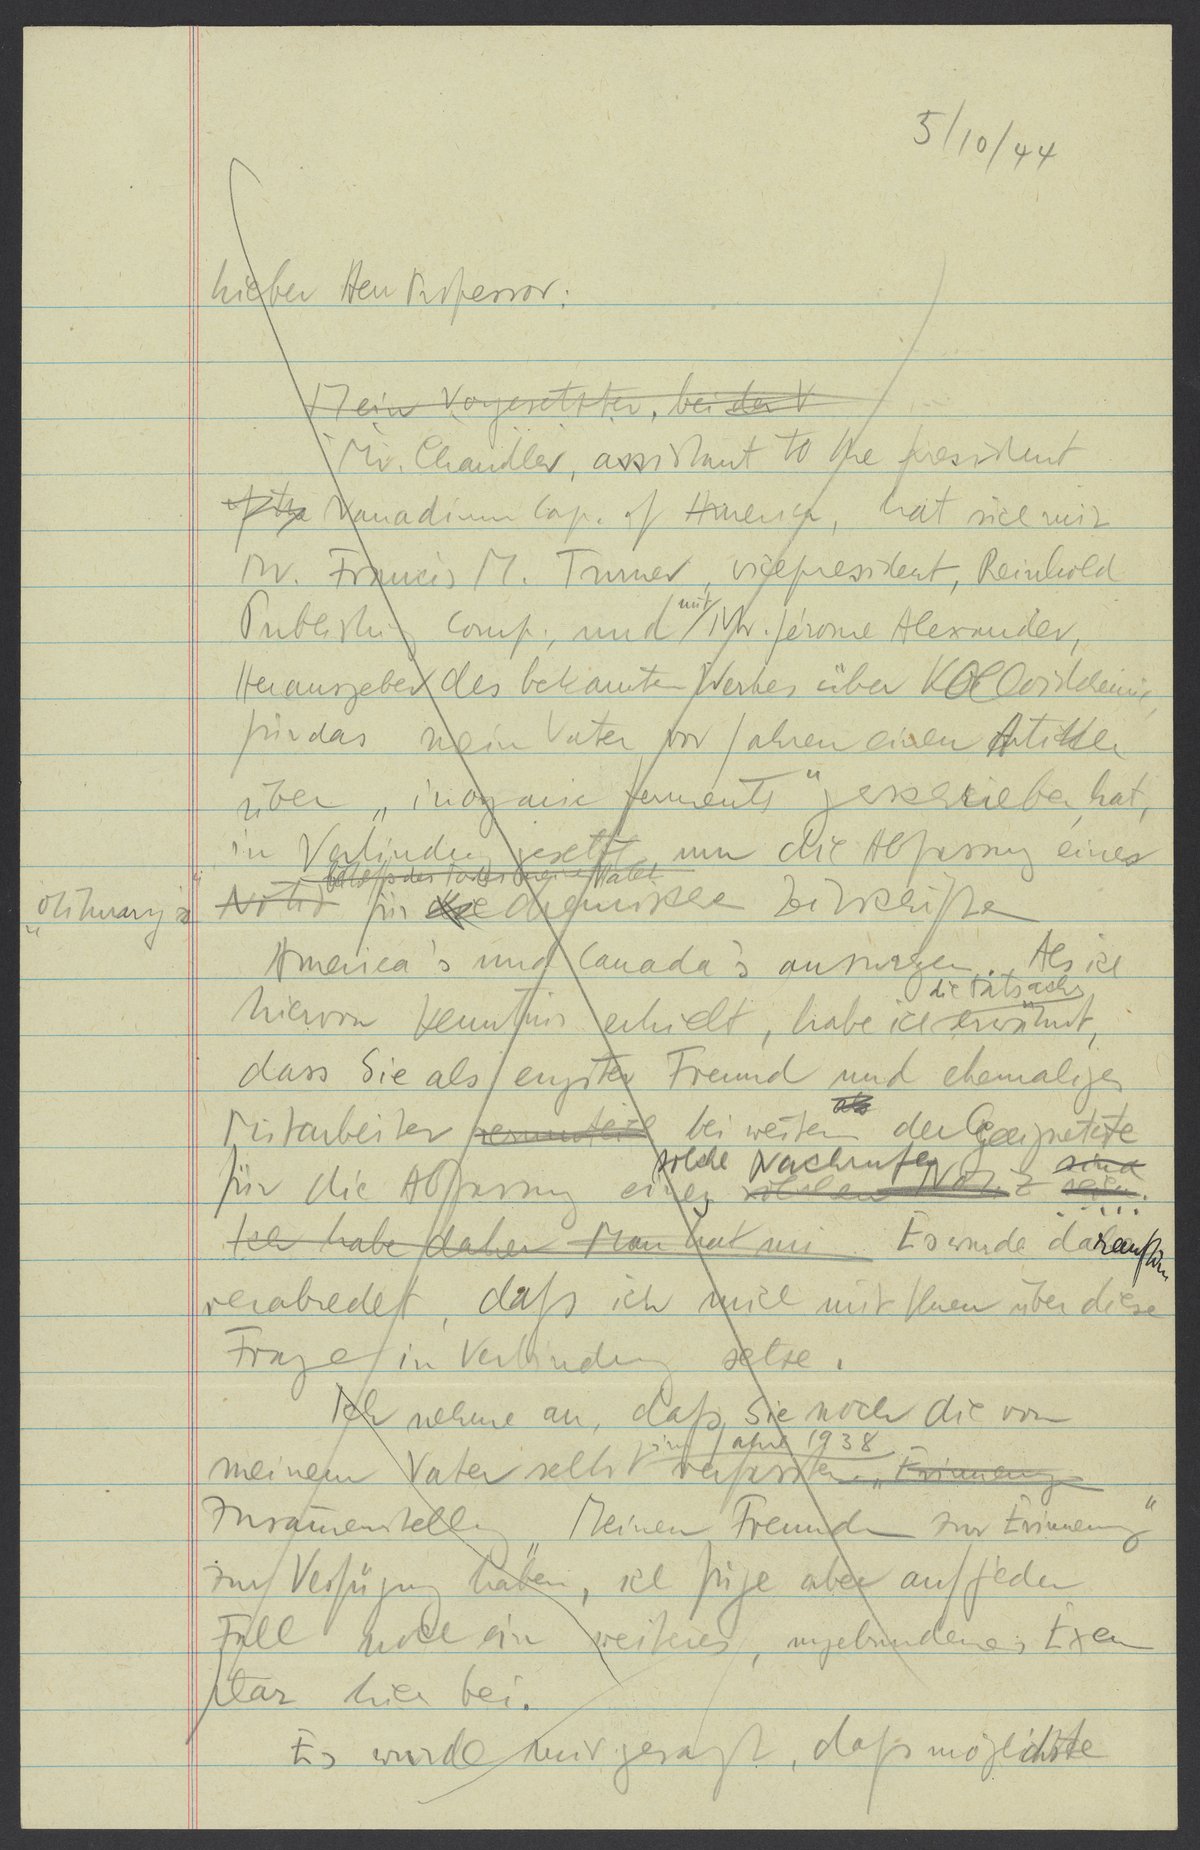 5/10/44
Lieber Herr Professor:
Mein Vorgesetzter, bei der V
Mr. Chandler, assistant to the president
of the Vanadium Corp. of America, hat sich mit
Mr. Francis M. Turner, vicepresident, Reinhold
Publishing Comp., und mit Mr. Jerome Alexander,
Herausgeber des bekannten Werkes über Kolloidchemie,
für das mein Vater vor Jahren einen Artikel
über „inorganic ferments" geschrieben hat,
in Verbindung gesetzt, um die Abfassung eines
behufs des Todes meines Vaters
„obituary's" Notiz für die chemischen Zeitschriften
America's und Canada's anzuregen. Als ich
die Tatsache
hiervon Kenntnis erhielt, habe ich erwähnt,
dass Sie als engster Freund und ehemaliger
Mitarbeiter bei weitem der Geeignetste
solche Nachrufe sind
für die Abfassung einer solchen Notiz seien.
Ich habe daher Man hat mi Es wurde daraufhin
verabredet, daß ich mich mit Ihnen über diese
Frage in Verbindung setze.
Ich nehme an, daß Sie noch die von
im Jahre 1938
meinem Vater selbst verfassten „Erinnerung
Zusammenstellung Meinen Freunden zur Erinnerung"
zur Verfügung haben, ich füge aber auf jeden
Fall noch ein weiteres, ungebundenes Exem
plar hier bei.
Es wurde mir gesagt, daß möglichste